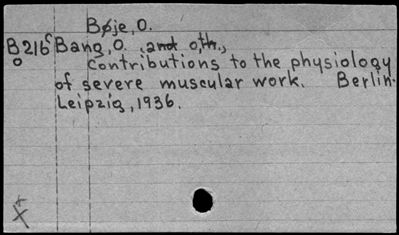 Bøje, O.
B216c Bang, O. , and oth.,
o contributions to the physiology
of severe muscular work. Berlin-
Leipzig, 1936.
x